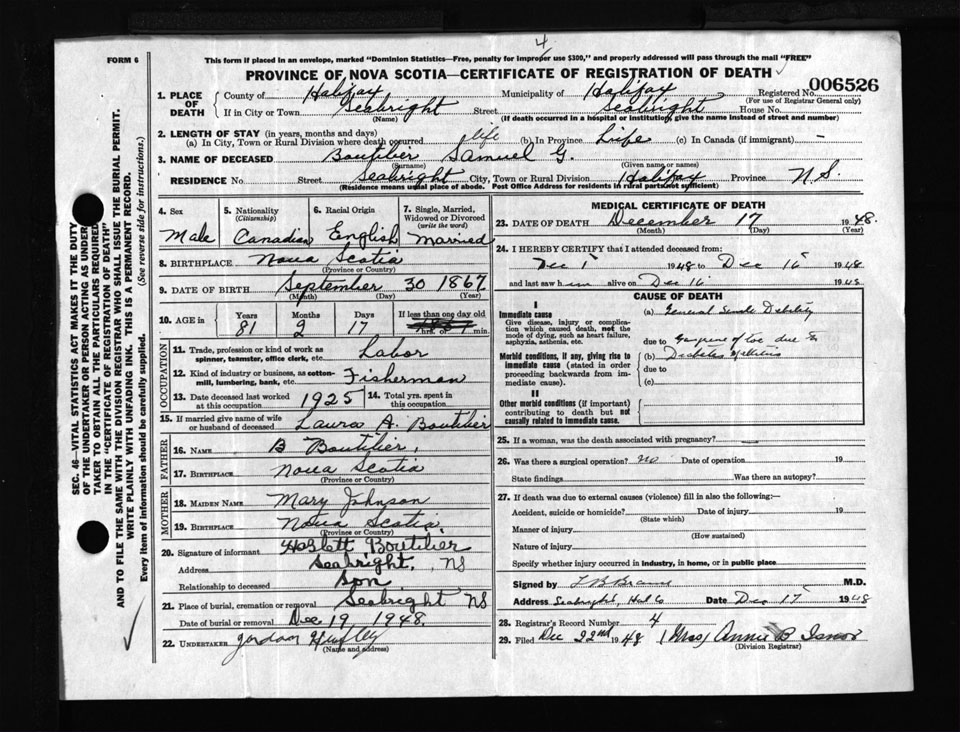 4
FORM 6
This form if placed in an envelope, marked "Dominion Statistics—Free, penalty for improper use $300," and properly addressed will pass through the mail "FREE"
PROVINCE OF NOVA SCOTIA—CERTIFICATE OF REGISTRATION OF DEATH
1. PLACE OF DEATH County of Halifax Municipality of Halifax Registered No. 006526
(For use of Registrar General only)
If in City or Town Seabright Street Seabright House No.
(Name) (If death occurred in a hospital or institution, give the name instead of street and number)
2. LENGTH OF STAY (in years, months and days)
(a) In City, Town or Rural Division where death occurred life (b) In Province Life (c) In Canada (if immigrant) —
3. NAME OF DECEASED Boutilier Samuel G.
(Surname) (Given name or names)
RESIDENCE No Street Seabright City, Town or Rural Division Halifax Province N.S.
(Residence means usual place of abode. Post Office Address for residents in rural parts not sufficient)
4. Sex 5. Nationality (Citizenship) 6. Racial Origin 7. Single, Married, Widowed or Divorced (write the word)
Male Canadian English Married
8. BIRTHPLACE Nova Scotia
(Province or Country)
9. DATE OF BIRTH September 30 1867
(Month) (Day) (Year)
10. AGE in Years Months Days If less than one day old
81 2 17 hrs. or min.
OCCUPATION
11. Trade, profession or kind of work as spinner, teamster, office clerk, etc. Labor
12. Kind of industry or business, as cotton-mill, lumbering, bank, etc. Fisherman
13. Date deceased last worked at this occupation 1925 14. Total yrs. spent in this occupation
15. If married give name of wife or husband of deceased Laura A. Boutilier
FATHER
16. NAME B Boutilier,
17. BIRTHPLACE Nova Scotia
MOTHER
18. MAIDEN NAME Mary Johnson
19. BIRTHPLACE Nova Scotia
(Province or Country)
20. Signature of informant Boutilier
Address Seabright, NS
Relationship to deceased Son
21. Place of burial, cremation or removal Seabright NS
Date of burial or removal Dec 19, 1948.
22. UNDERTAKER
(Name and address)
MEDICAL CERTIFICATE OF DEATH
23. DATE OF DEATH December 17 1948.
(Month) (Day) (Year)
24. I HEREBY CERTIFY that I attended deceased from:
Dec 1 1948 to Dec 16 1948
and last saw him alive on Dec 16 1948
CAUSE OF DEATH
I
Immediate cause
Give disease, injury or complication which caused death, not the mode of dying, such as heart failure, asphyxia, asthenia, etc.
(a) General Senile Debility
due to Gangrene of toe due to
Morbid conditions, if any, giving rise to immediate cause (stated in order proceeding backwards from immediate cause).
(b) Diabetes Mellitus
due to
(c)
II
Other morbid conditions (if important) contributing to death but not causally related to immediate cause.
25. If a woman, was the death associated with pregnancy? —
26. Was there a surgical operation? no Date of operation 19
State findings Was there an autopsy?
27. If death was due to external causes (violence) fill in also the following:—
Accident, suicide or homicide? Date of injury 19
(State which)
Manner of injury
(How sustained)
Nature of injury
Specify whether injury occurred in industry, in home, or in public place
Signed by M.D.
Address Seabright, Hal Co Date Dec 17 1948
28. Registrar's Record Number 4
29. Filed Dec 22nd 1948 (Mrs) Annie B Isnor
(Division Registrar)
SEC. 46—VITAL STATISTICS ACT MAKES IT THE DUTY
OF THE UNDERTAKER OR PERSON ACTING AS UNDERTAKER TO OBTAIN ALL THE PARTICULARS REQUIRED
IN THE "CERTIFICATE OF REGISTRATION OF DEATH"
AND TO FILE THE SAME WITH THE DIVISION REGISTRAR WHO SHALL ISSUE THE BURIAL PERMIT.
WRITE PLAINLY WITH UNFADING INK. THIS IS A PERMANENT RECORD.
Every item of information should be carefully supplied. (See reverse side for instructions.)